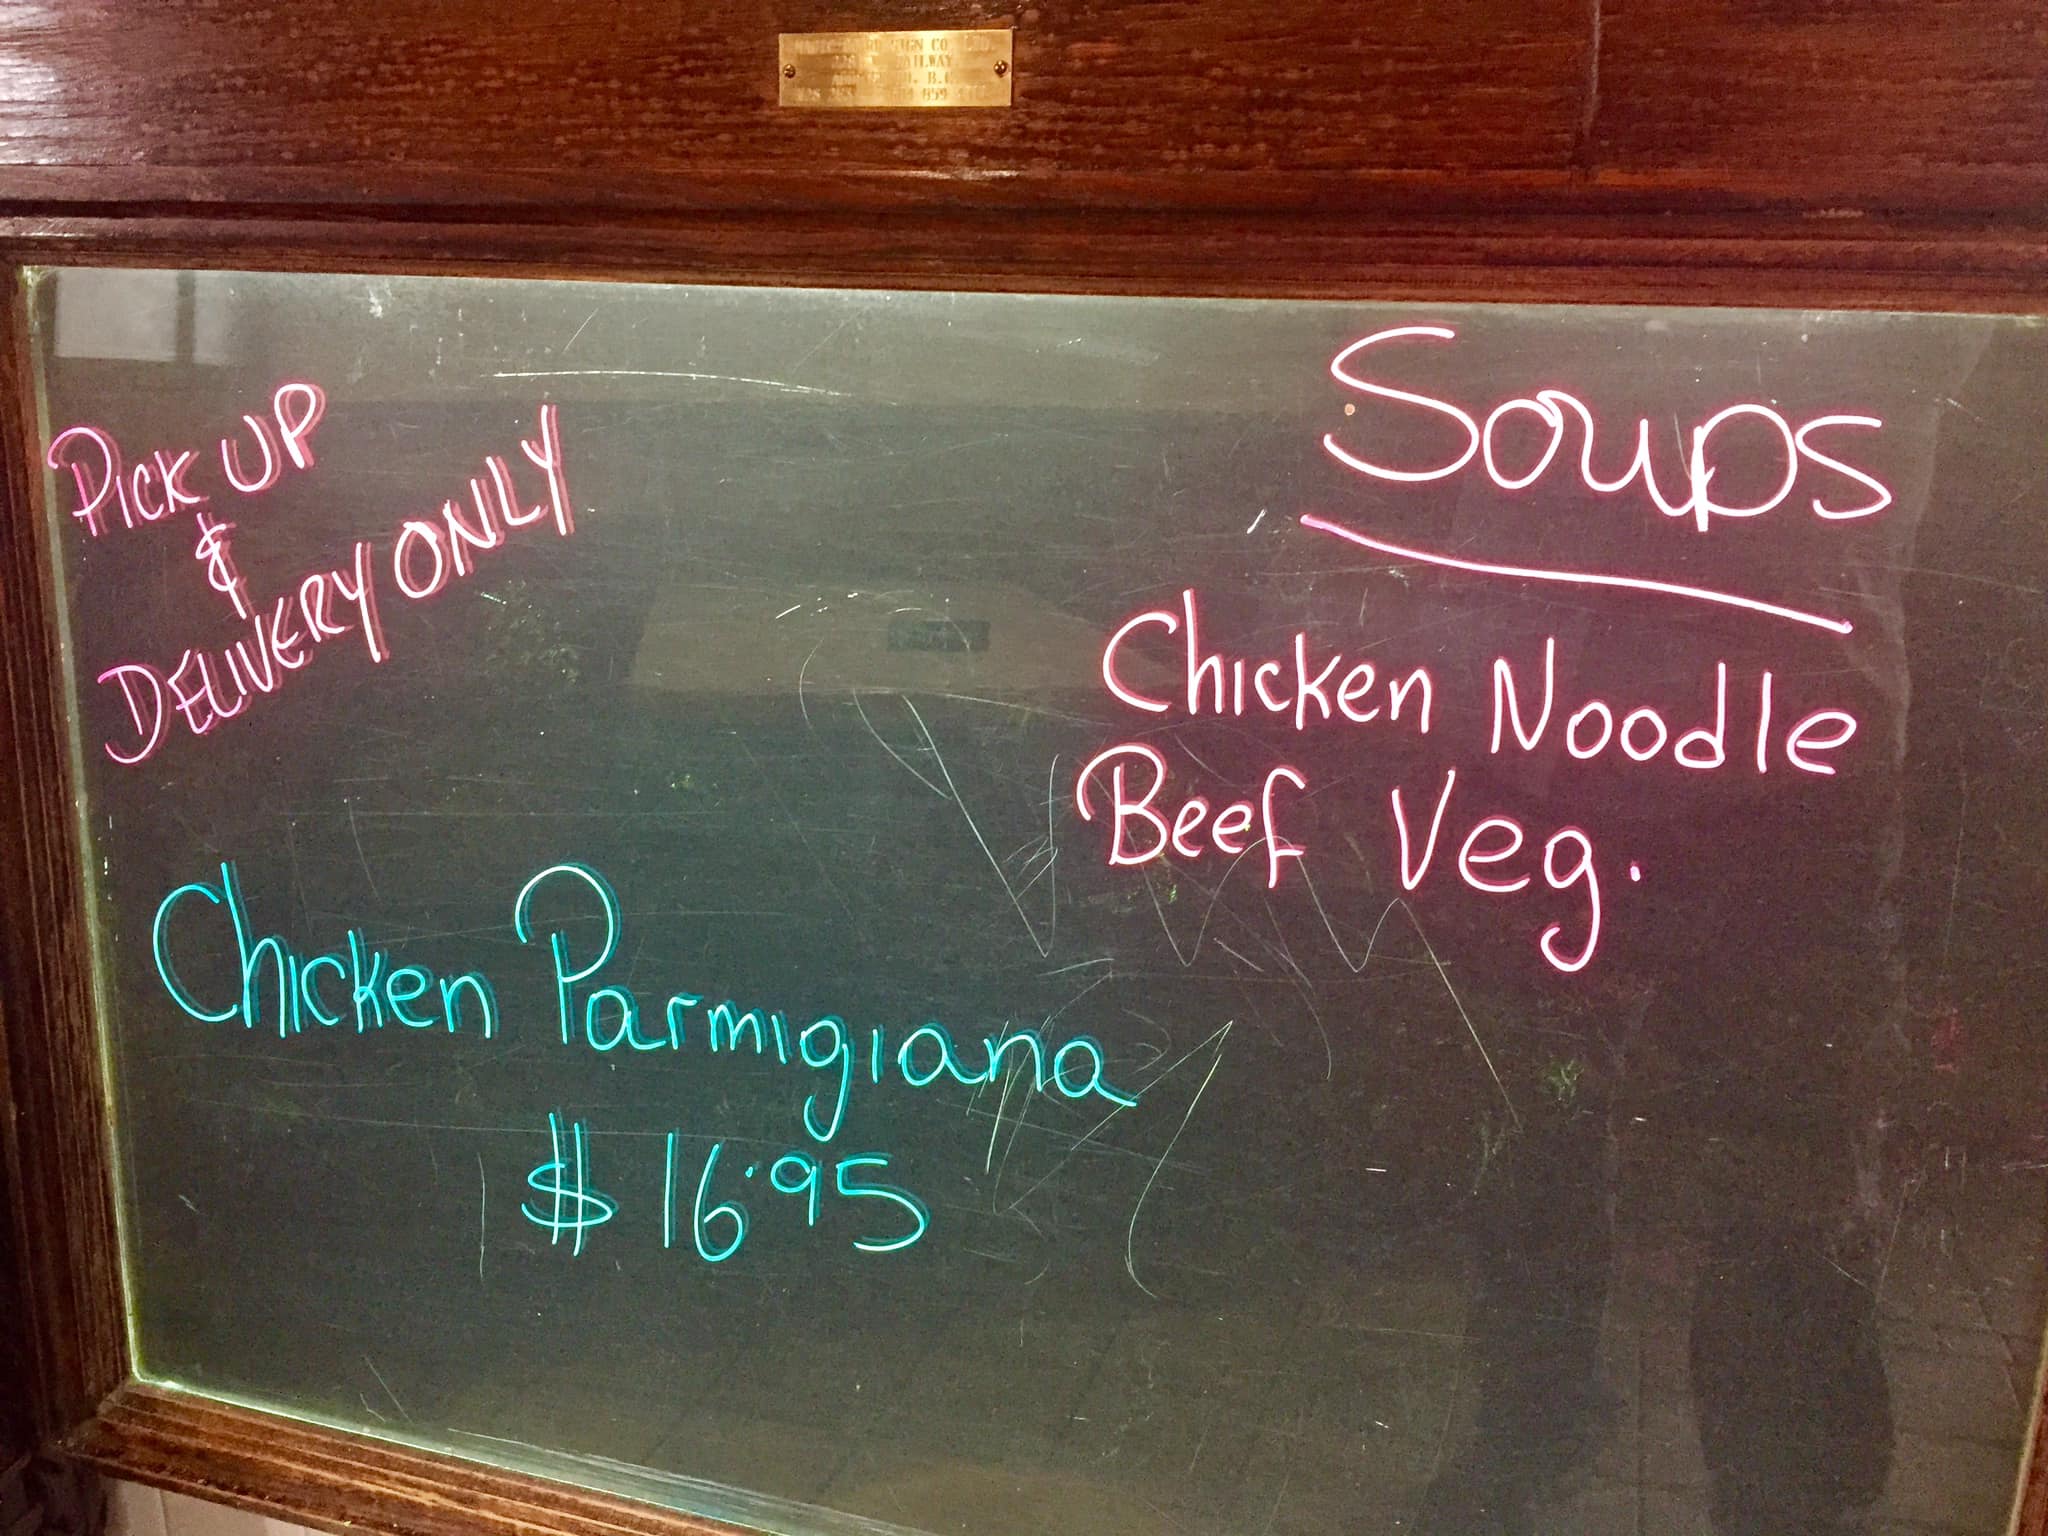 SIGN CO. LTD.
RAILWAY
B.C.
859
PICK UP
&
DELIVERY ONLY
Soups
Chicken Noodle
Beef Veg.
Chicken Parmigiana
$16.95